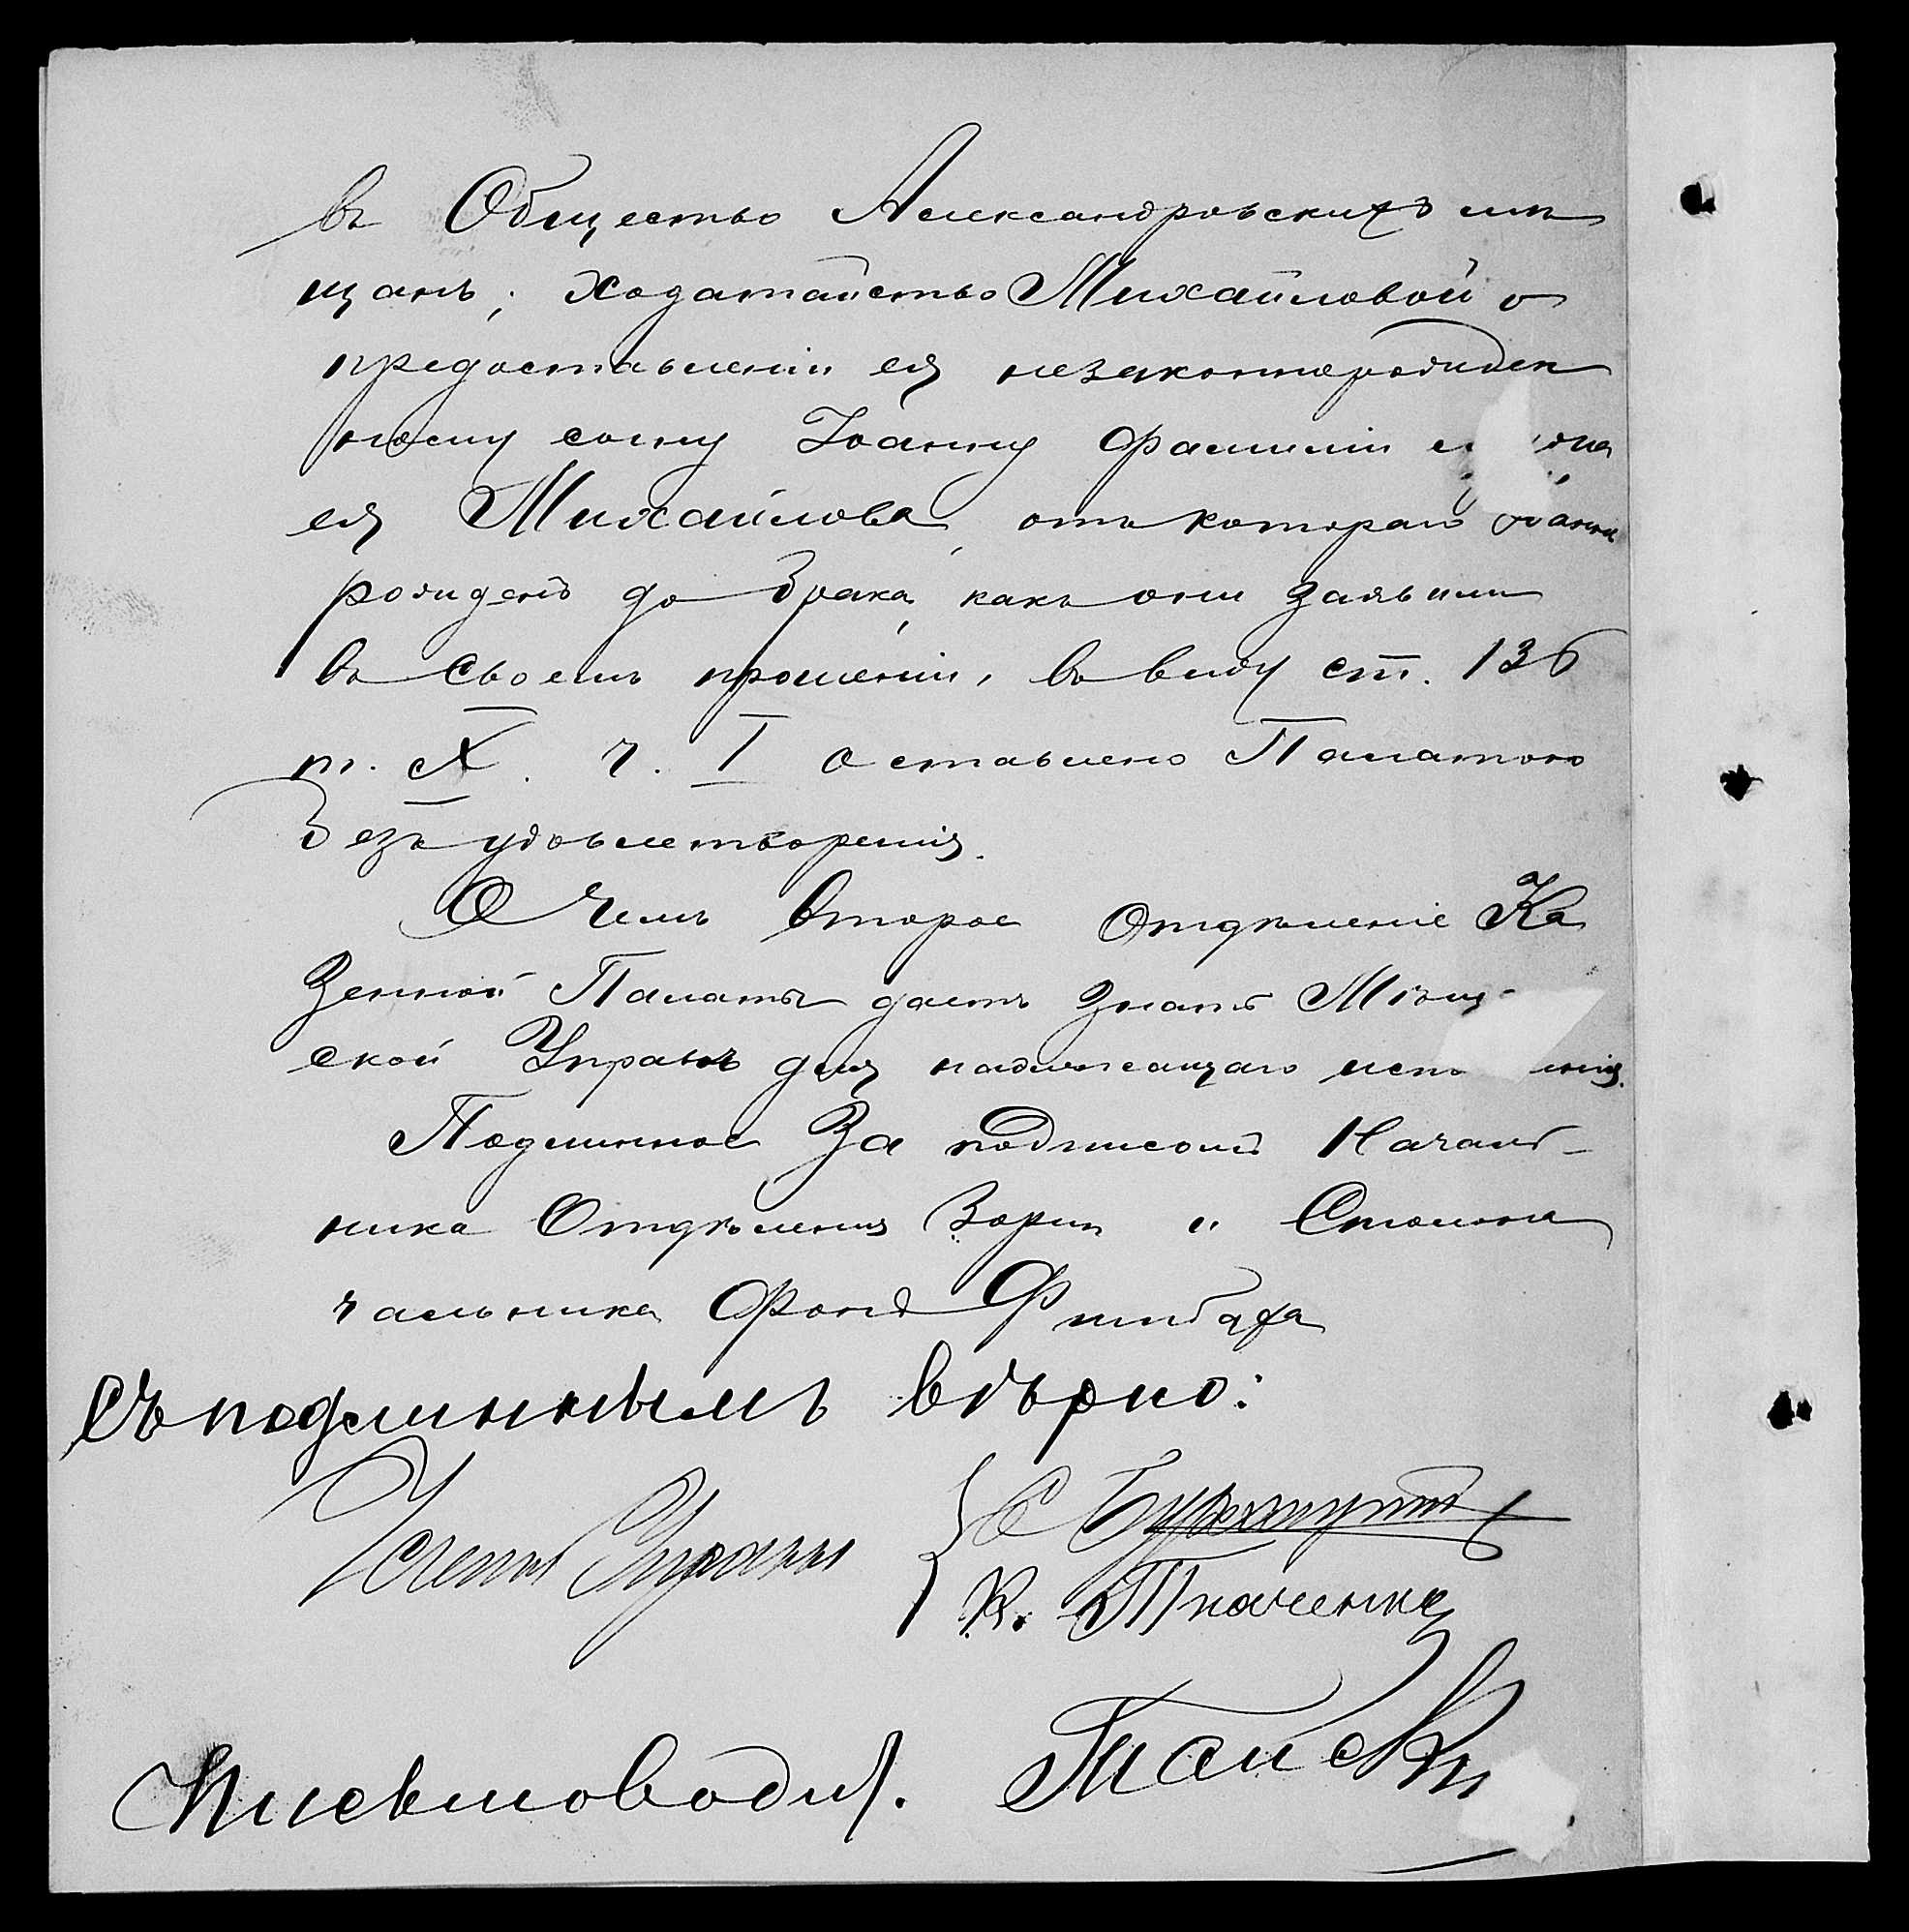 въ Общество Александровскихъ мѣ
щанъ; ходатайство Михайловой о
предоставленіи ея незаконнорожден
ному сыну Іоанну фамиліи
ея Михайлова, отъ котораго Іоаннъ
рожденъ до брака, какъ они заявили
въ своемъ прошеніи, въ виду ст. 136
т. X. ч. I оставлено Палатою
безъ удовлетворенія.
О чемъ Второе Отдѣленіе Ка
зенной Палаты даетъ знать Мѣщ-
ской Управѣ для надлежащаго
Подлинное за подписомъ Началь-
ника Отдѣленія Зорин и Столона
чальника Фонъ Фитбаха
Съ подлиннымъ вѣрно:
Члены Управы С
К. Ткаченко
Письмоводит.